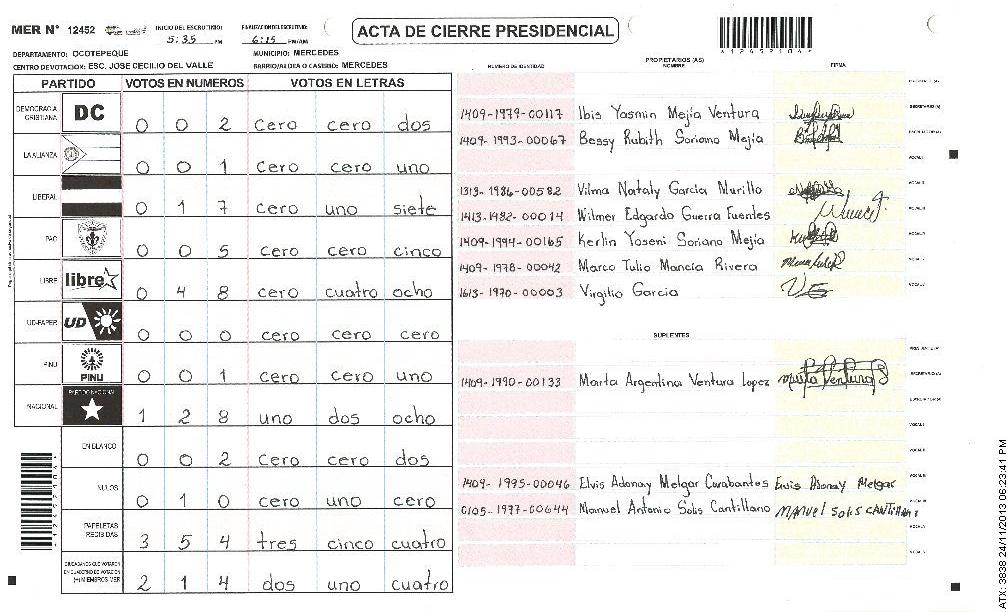 MER Nº 12452 INICIO DEL ESCRUTINIO: 5:35 PM FINALIZACION DEL ESCRUTINIO: 6:15 PM/AM
ACTA DE CIERRE PRESIDENCIAL
DEPARTAMENTO: OCOTEPEQUE MUNICIPIO: MERCEDES
CENTRO DE VOTACION: ESC. JOSE CECILIO DEL VALLE BARRIO/ALDEA O CASERIO: MERCEDES
PARTIDO VOTOS EN NUMEROS VOTOS EN LETRAS
DEMOCRACIA CRISTIANA DC 0 0 2 cero cero dos
LA ALIANZA 0 0 1 cero cero uno
LIBERAL 0 1 7 cero uno siete
PAC 0 0 5 cero cero cinco
LIBRE libre 0 4 8 cero cuatro ocho
UD-FAPER UD 0 0 0 cero cero cero
PINU PINU 0 0 1 cero cero uno
NACIONAL PARTIDO NACIONAL 1 2 8 uno dos ocho
EN BLANCO 0 0 2 cero cero dos
NULOS 0 1 0 cero uno cero
PAPELETAS RECIBIDAS 3 5 4 tres cinco cuatro
CIUDADANOS QUE VOTARON EN CUADERNO DE VOTACION (+) MIEMBROS MER 2 1 4 dos uno cuatro
PROPIETARIOS (AS)
NUMERO DE IDENTIDAD NOMBRE FIRMA
1409-1979-00117 Ibis Yasmin Mejía Ventura SECRETARIO (A)
1409-1993-00067 Bessy Rubith Soriano Mejía
1313-1986-00582 Vilma Nataly Garcia Murillo
1413-1982-00014 Wilmer Edgardo Guerra Fuentes
1409-1994-00165 Kerlin Yoseni Soriano Mejía
1409-1978-00042 Marco Tulio Mancía Rivera
1613-1970-00003 Virgilio Garcia
SUPLENTES
1409-1990-00133 Marta Argentina Ventura Lopez Marta Ventura SECRETARIO (A)
1409-1995-00046 Elvis Adonay Melgar Carabantes Elvis Adonay Melgar
0105-1977-00644 Manuel Antonio Solis Cantillano MANUEL SOLIS CANTILLANO
ATX: 3838 24/11/2013 06:23:41 PM